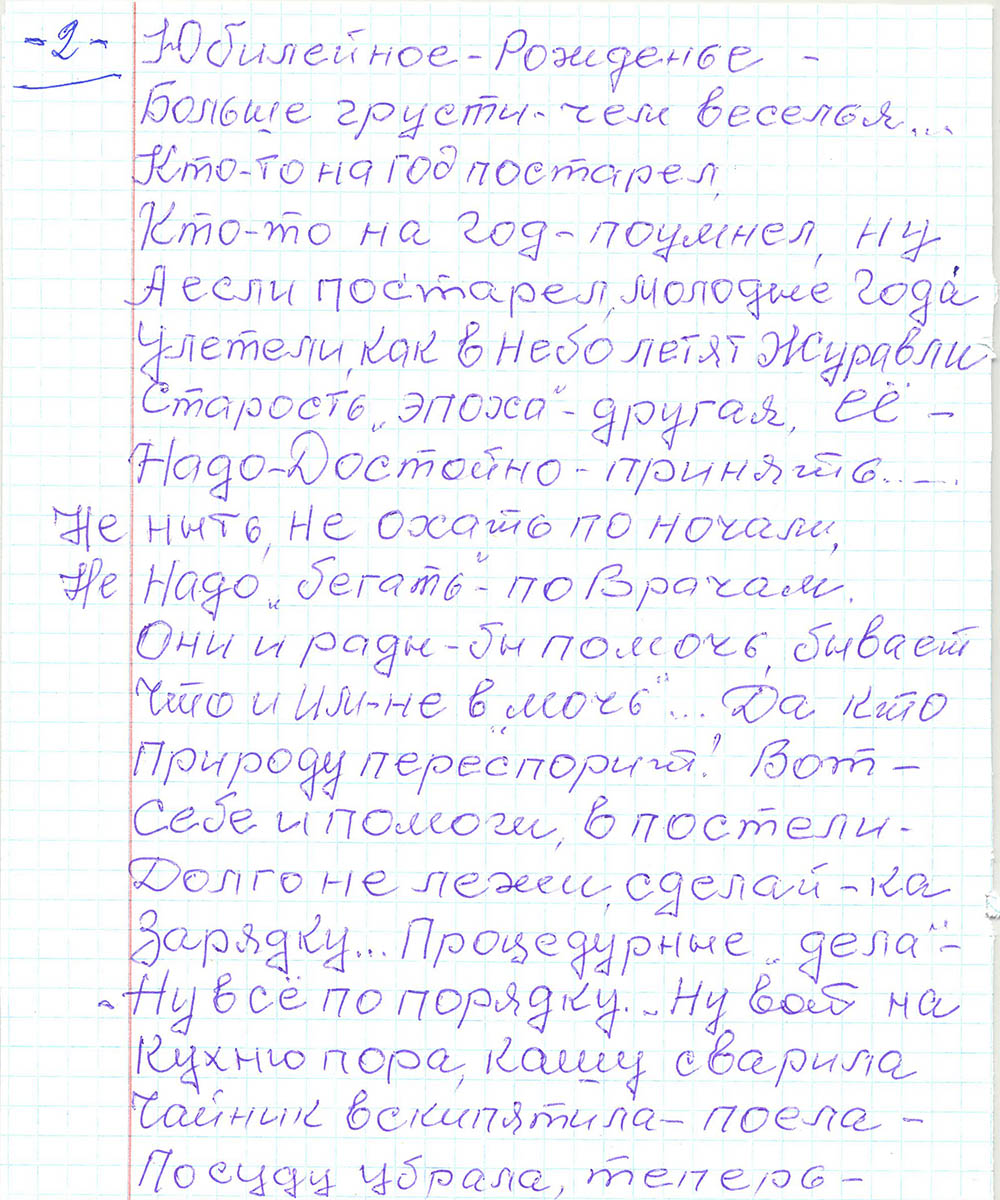 -2-
Юбилейное-Рожденье -
Больше грусти-чем веселья...
Кто-то на год постарел,
Кто-то на год-поумнел, ну
А если постарел, молодые года
Улетели, как в небо летят Журавли
Старость „эпоха"-другая, её -
Надо-Достойно-принять.....
Не ныть, не охать по ночам,
Не Надо „бегать"-по Врачам.
Они и рады-бы помочь, бывает
Что и Им-не в „мочь"... Да кто
Природу переспорит! Вот-
Себе и помоги, в постели-
Долго не лежи, сделай-ка
Зарядку... Процедурные „дела"-
Ну всё по порядку... Ну вот на
Кухню пора, кашу сварила
Чайник вскипятила-поела-
Посуду убрала, теперь-